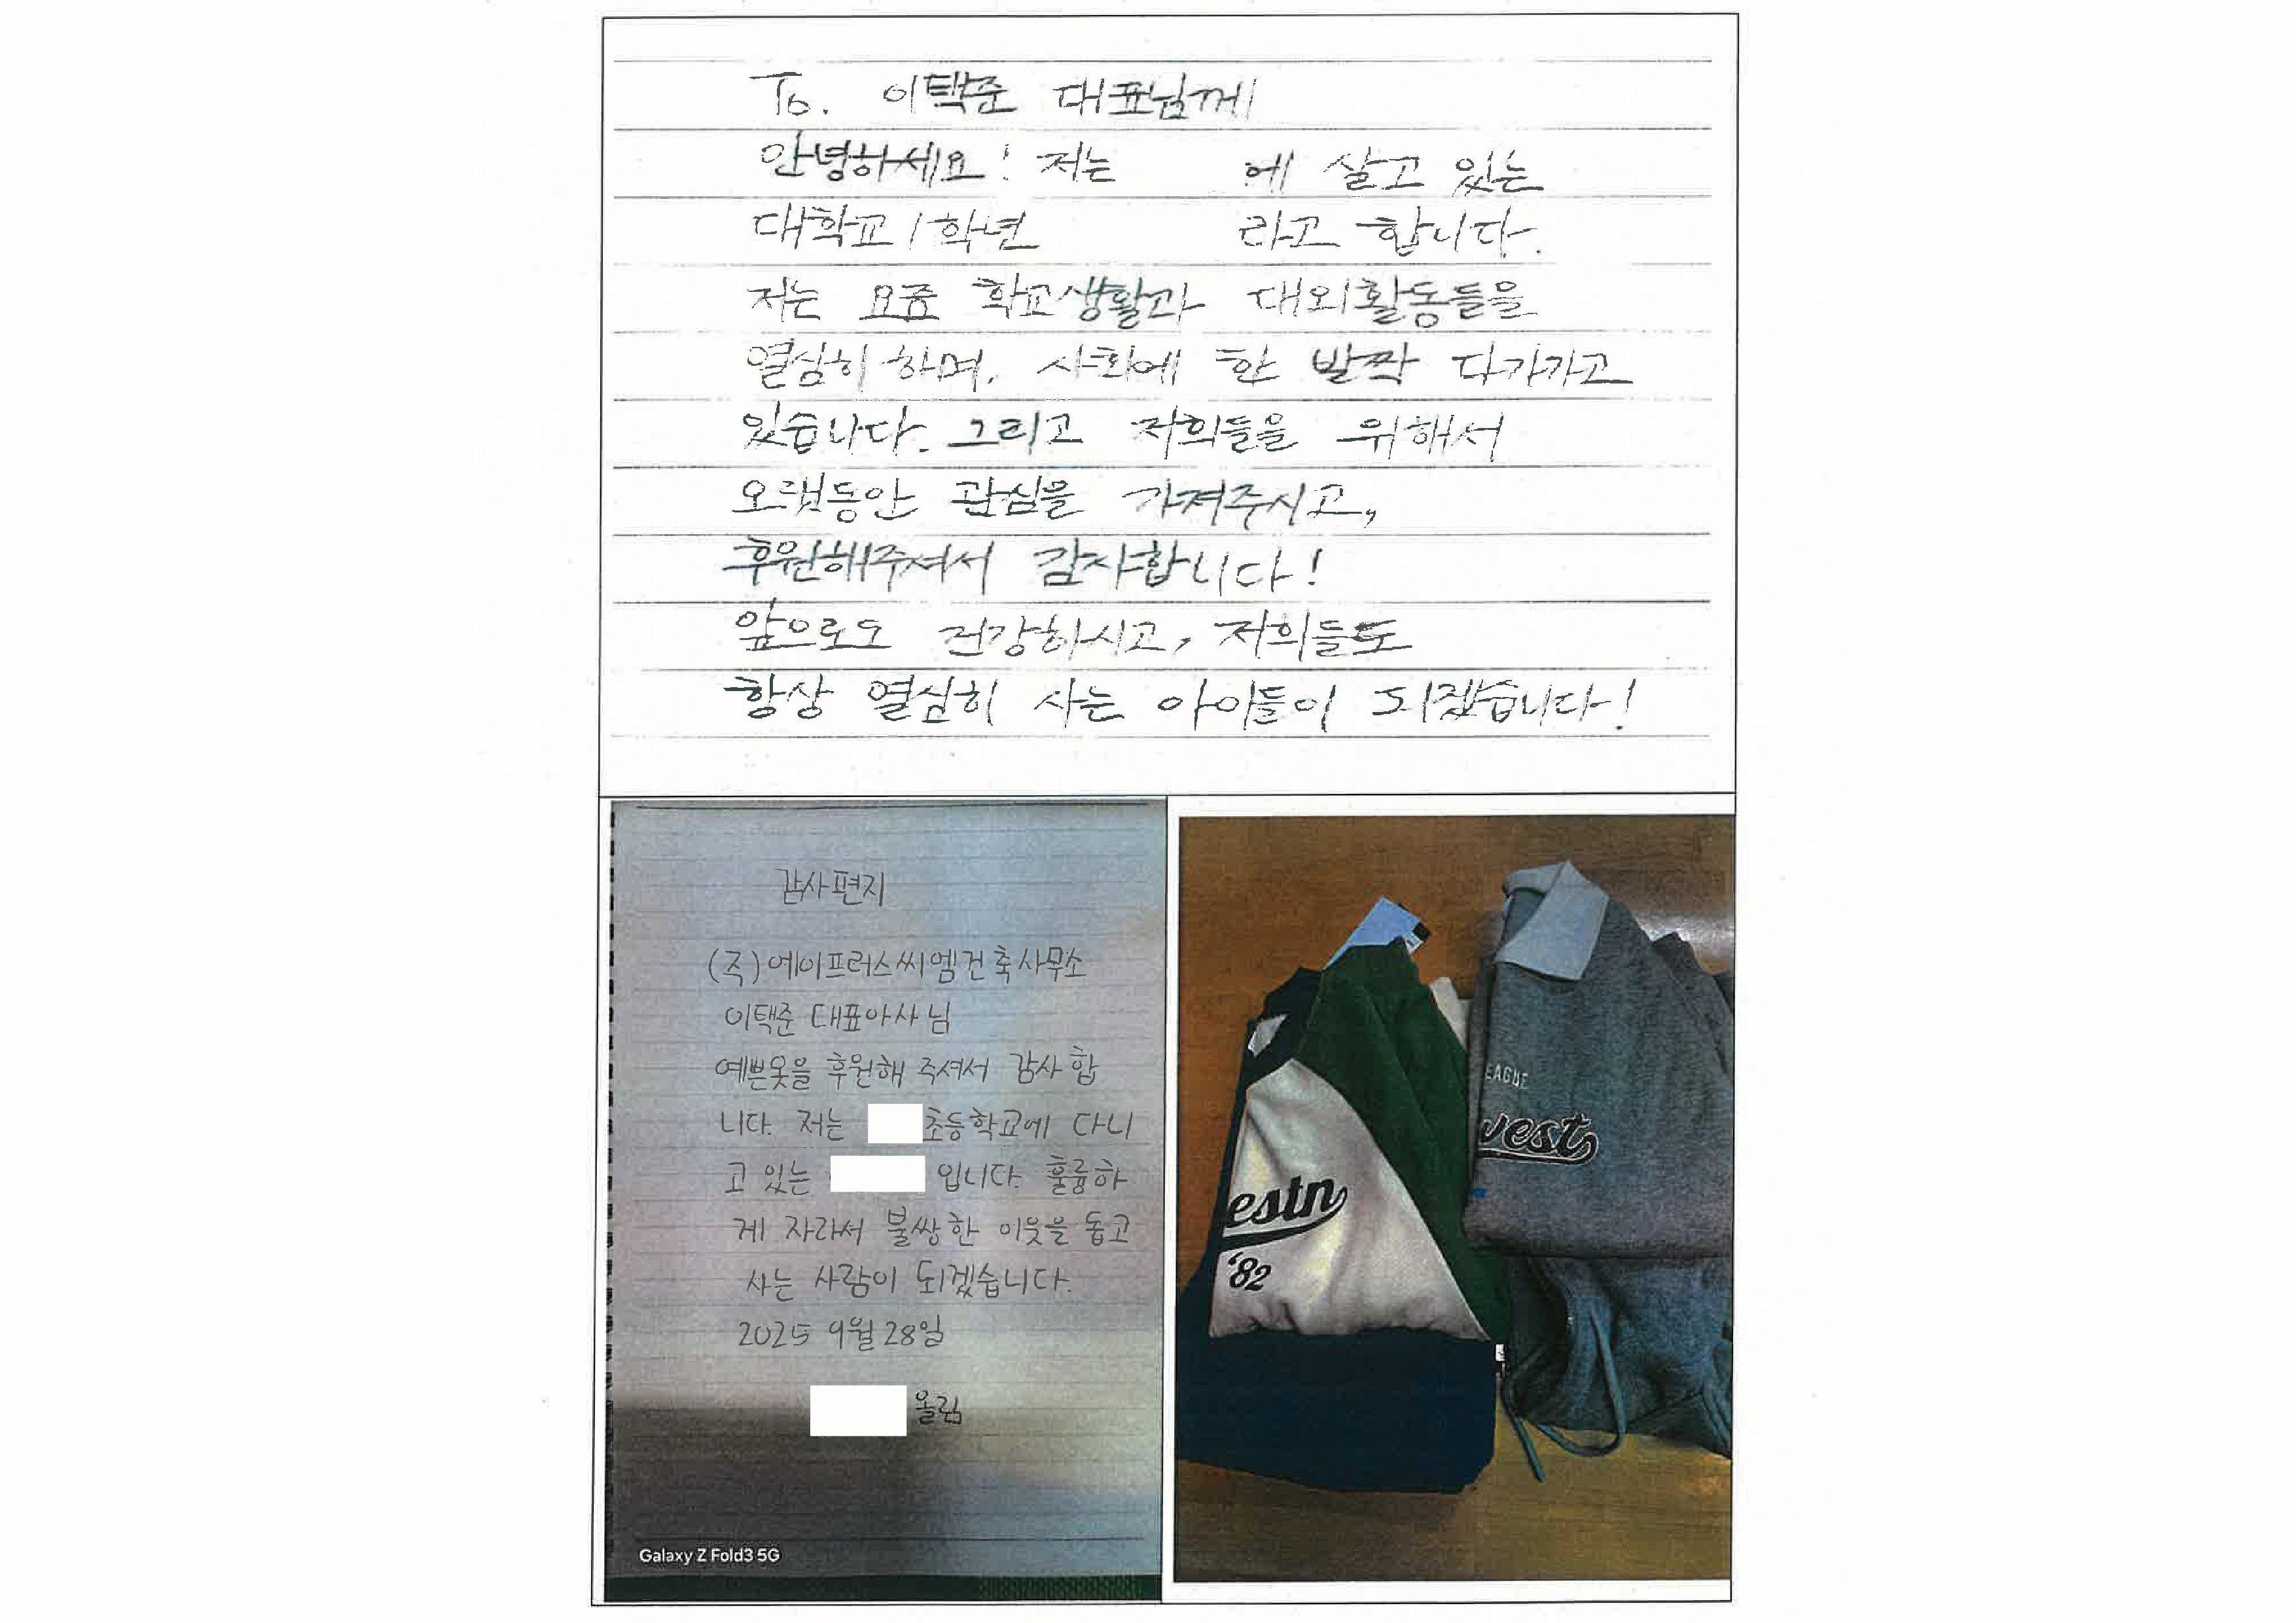 To. 이택준 대표님께
안녕하세요! 저는 에 살고 있는
대학교 1학년 라고 합니다.
저는 요즘 학교생활과 대외활동들을
열심히 하며, 사회에 한 발짝 다가가고
있습니다. 그리고 저희들을 위해서
오랫동안 관심을 가져주시고,
후원해주셔서 감사합니다!
앞으로도 건강하시고, 저희들도
항상 열심히 사는 아이들이 되겠습니다!
감사편지
(주)에이프러스씨엠건축사무소
이택준 대표이사님
예쁜옷을 후원해 주셔서 감사 합
니다. 저는 초등학교에 다니
고 있는 입니다. 훌륭하
게 자라서 불쌍한 이웃을 돕고
사는 사람이 되겠습니다.
2025 9월 28일
올림
Galaxy Z Fold3 5G
estn
'82
EAGUE
vest